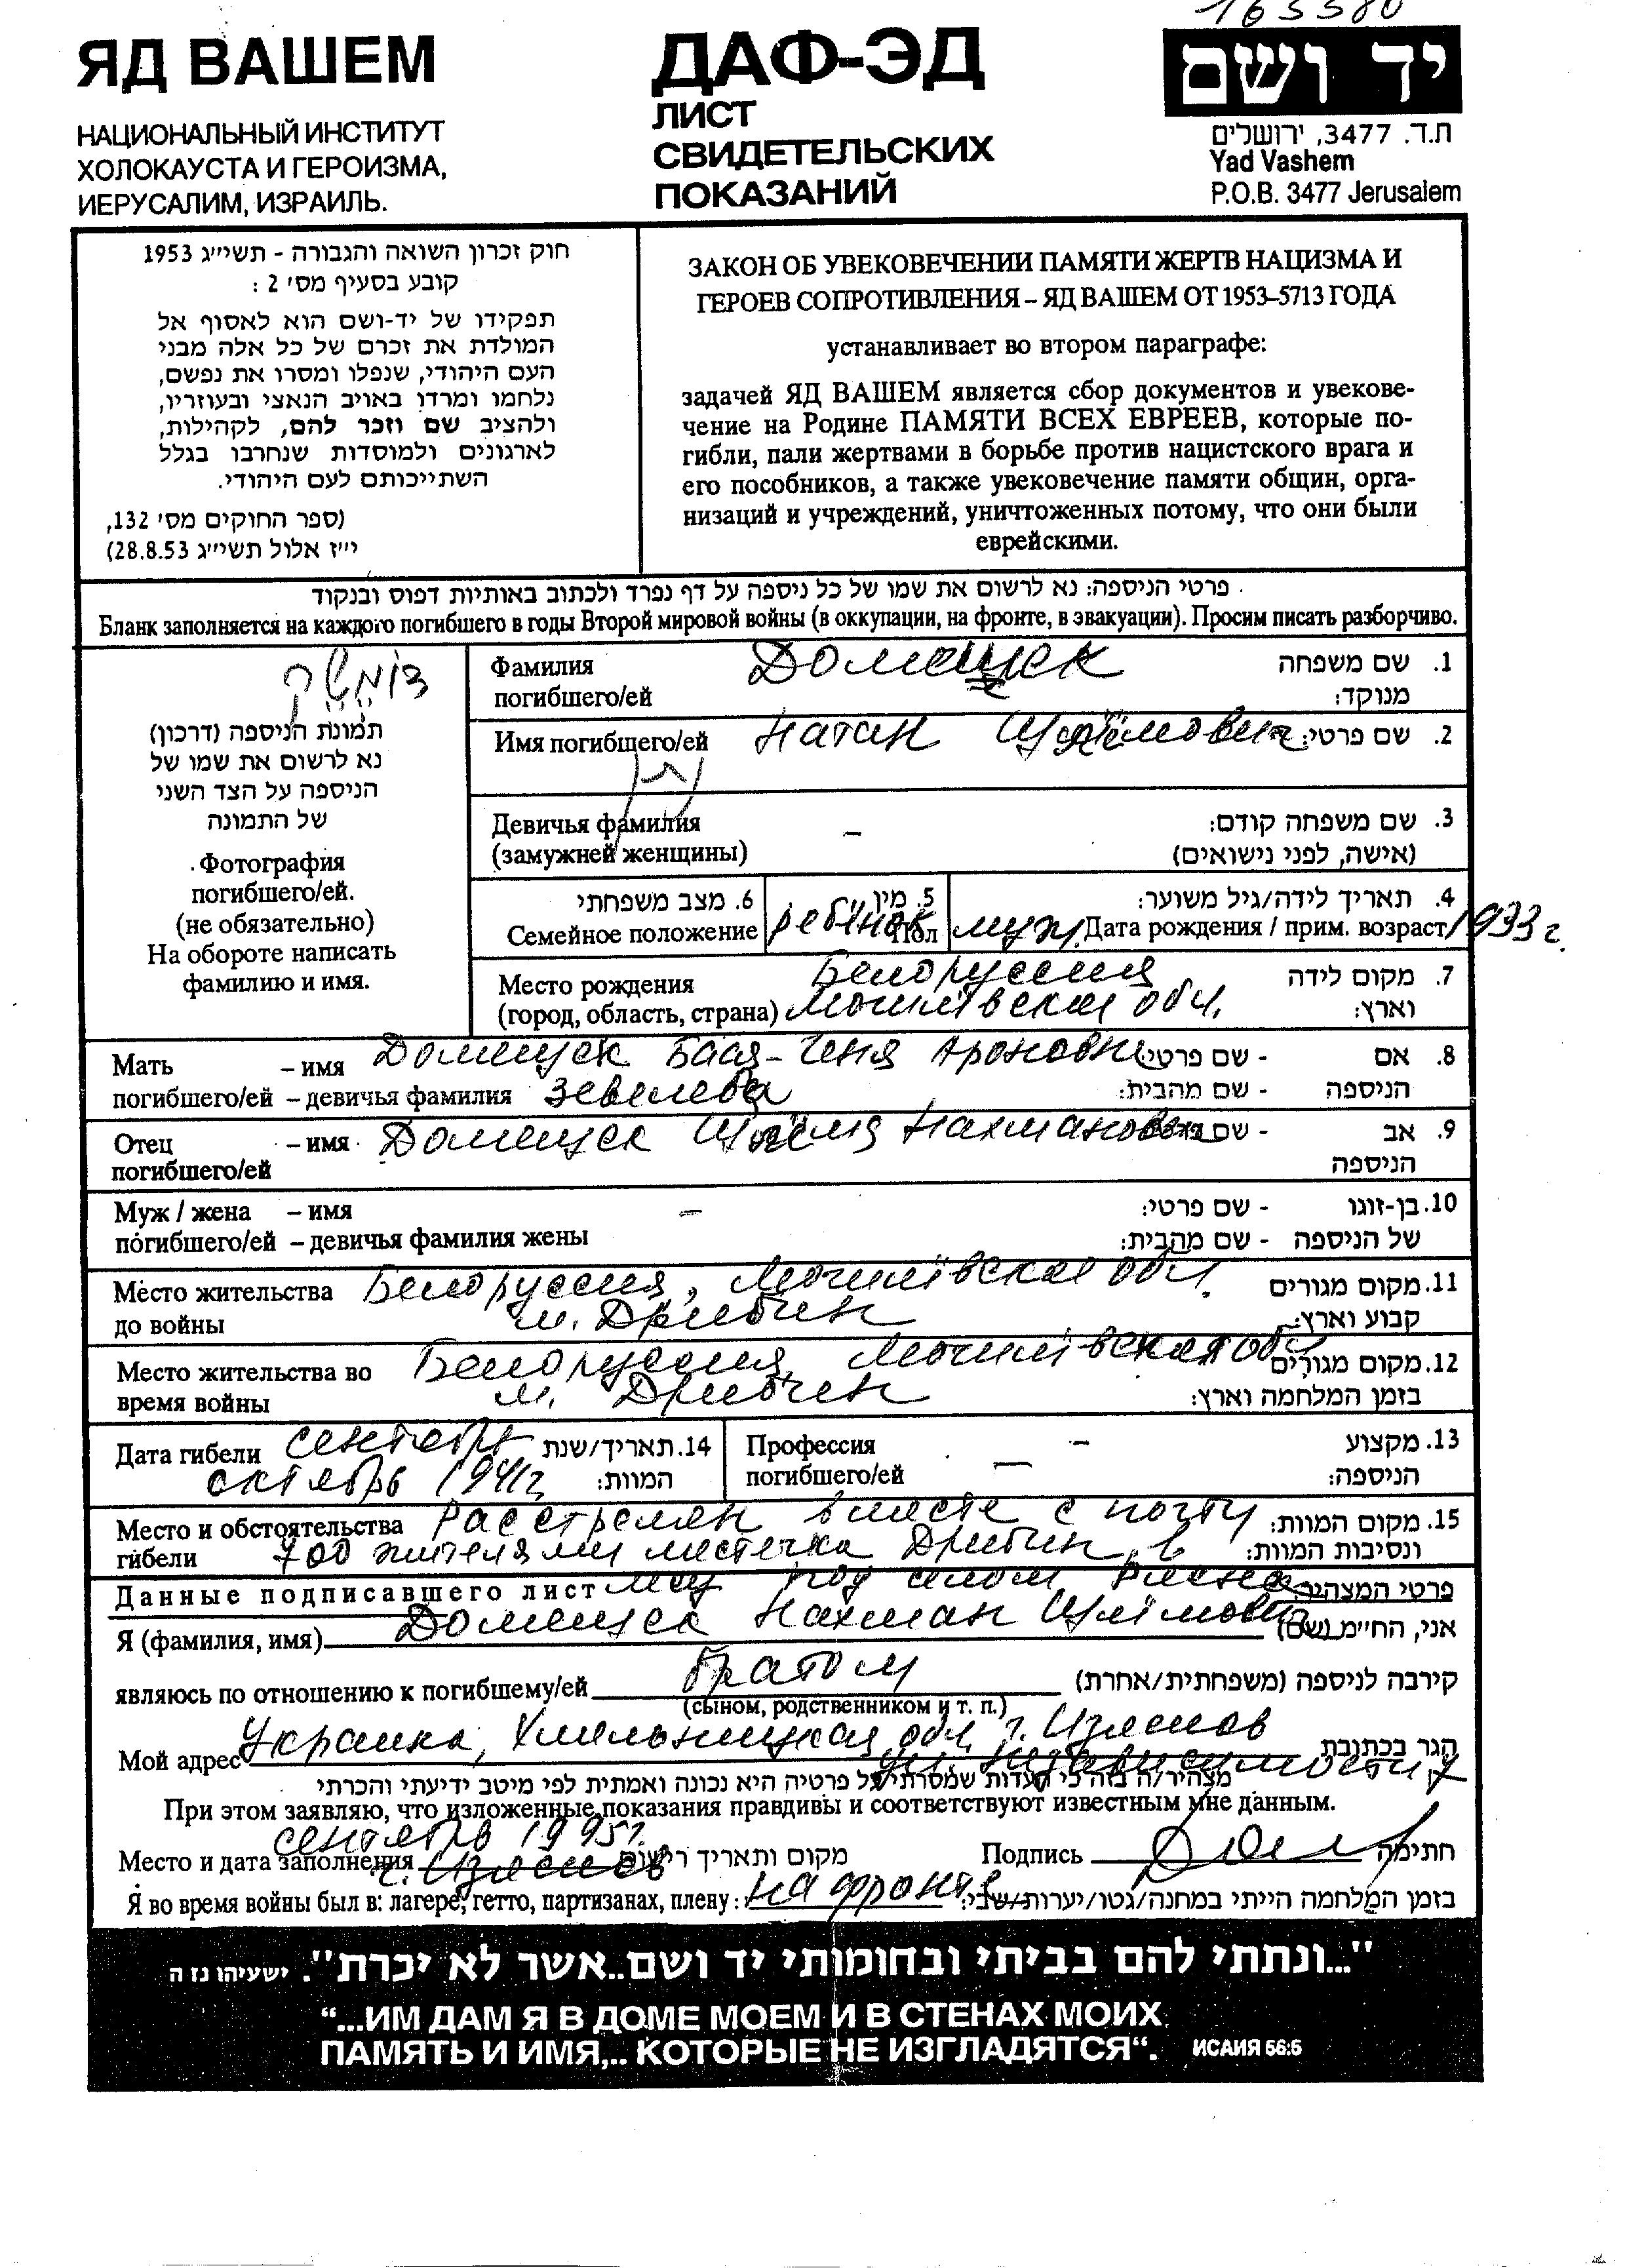 165580
ЯД ВАШЕМ
НАЦИОНАЛЬНЫЙ ИНСТИТУТ
ХОЛОКАУСТА И ГЕРОИЗМА,
ИЕРУСАЛИМ, ИЗРАИЛЬ.
ДАФ-ЭД
ЛИСТ
СВИДЕТЕЛЬСКИХ
ПОКАЗАНИЙ
יד ושם
ת.ד. 3477, ירושלים
Yad Vashem
P.O.B. 3477 Jerusalem
חוק זכרון השואה והגבורה - תשי״ג 1953
קובע בסעיף מס׳ 2 :
תפקידו של יד-ושם הוא לאסוף אל
המולדת את זכרם של כל אלה מבני
העם היהודי, שנפלו ומסרו את נפשם,
נלחמו ומרדו באויב הנאצי ובעוזריו,
ולהציב שם וזכר להם, לקהילות,
לארגונים ולמוסדות שנחרבו בגלל
השתייכותם לעם היהודי.
(ספר החוקים מס׳ 132,
י״ז אלול תשי״ג 28.8.53)
ЗАКОН ОБ УВЕКОВЕЧЕНИИ ПАМЯТИ ЖЕРТВ НАЦИЗМА И
ГЕРОЕВ СОПРОТИВЛЕНИЯ – ЯД ВАШЕМ ОТ 1953–5713 ГОДА
устанавливает во втором параграфе:
задачей ЯД ВАШЕМ является сбор документов и увекове-
чение на Родине ПАМЯТИ ВСЕХ ЕВРЕЕВ, которые по-
гибли, пали жертвами в борьбе против нацистского врага и
его пособников, а также увековечение памяти общин, орга-
низаций и учреждений, уничтоженных потому, что они были
еврейскими.
פרטי הניספה: נא לרשום את שמו של כל ניספה על דף נפרד ולכתוב באותיות דפוס ובנקוד
Бланк заполняется на каждого погибшего в годы Второй мировой войны (в оккупации, на фронте, в эвакуации). Просим писать разборчиво.
תמונת הניספה (דרכון)
נא לרשום את שמו של
הניספה על הצד השני
של התמונה
Фотография
погибшего/ей.
(не обязательно)
На обороте написать
фамилию и имя.
Фамилия Домещек 1. שם משפחה
погибшего/ей מנוקד:
Имя погибшего/ей Натан 2. שם פרטי:
נתן
Девичья фамилия – 3. שם משפחה קודם:
(замужней женщины) (אישה, לפני נישואים)
6. מצב משפחתי 5. מין 4. תאריך לידה/גיל משוער:
Семейное положение ребёнок Пол муж. Дата рождения / прим. возраст 1933 г.
Место рождения Белоруссия 7. מקום לידה
(город, область, страна) Могилёвская обл. וארץ:
Мать – имя Домещек Бася-Геня Ароновна - שם פרטי: 8. אם
погибшего/ей – девичья фамилия Зевелева - שם מהבית: הניספה
Отец – имя Домещек Нахманович - שם פרטי: 9. אב
погибшего/ей הניספה
Муж / жена – имя – - שם פרטי: 10. בן-זוגו
погибшего/ей – девичья фамилия жены - שם מהבית: של הניספה
Место жительства Белоруссия, Могилёвская обл. 11. מקום מגורים
до войны м. Дрибин קבוע וארץ:
Место жительства во Белоруссия, Могилёвская обл 12. מקום מגורים
время войны м. Дрибин בזמן המלחמה וארץ:
Дата гибели сентябрь 14. תאריך/שנת
октябрь 1941г המוות:
Профессия – 13. מקצוע
погибшего/ей — הניספה:
Место и обстоятельства Расстрелян вместе с почти 15. מקום המוות:
гибели 400 жителями местечка Дрибин, в ונסיבות המוות:
Данные подписавшего лист под פרטי המצהיר:
Я (фамилия, имя) Домещек Нахман אני, החי״מ (שם)
являюсь по отношению к погибшему/ей братом קירבה לניספה (משפחתית/אחרת)
(сыном, родственником и т. п.)
Мой адрес Украина, Хмельницкая обл. г. Изяслав הגר בכתובת
ул. Независимости 7
מצהיר/ה בזה כי העדות שמסרתי על פרטיה היא נכונה ואמתית לפי מיטב ידיעתי והכרתי
При этом заявляю, что изложенные показания правдивы и соответствуют известным мне данным.
сентябрь 1995г.
Место и дата заполнения г. Изяслав מקום ותאריך רישום Подпись חתימה
Я во время войны был в: лагере, гетто, партизанах, плену: на фронте בזמן המלחמה הייתי במחנה/גטו/יערות/שבי:
"...ונתתי להם בביתי ובחומותי יד ושם..אשר לא יכרת". ישעיהו נז ה
“...ИМ ДАМ Я В ДОМЕ МОЕМ И В СТЕНАХ МОИХ
ПАМЯТЬ И ИМЯ,.. КОТОРЫЕ НЕ ИЗГЛАДЯТСЯ“. ИСАИЯ 56:5